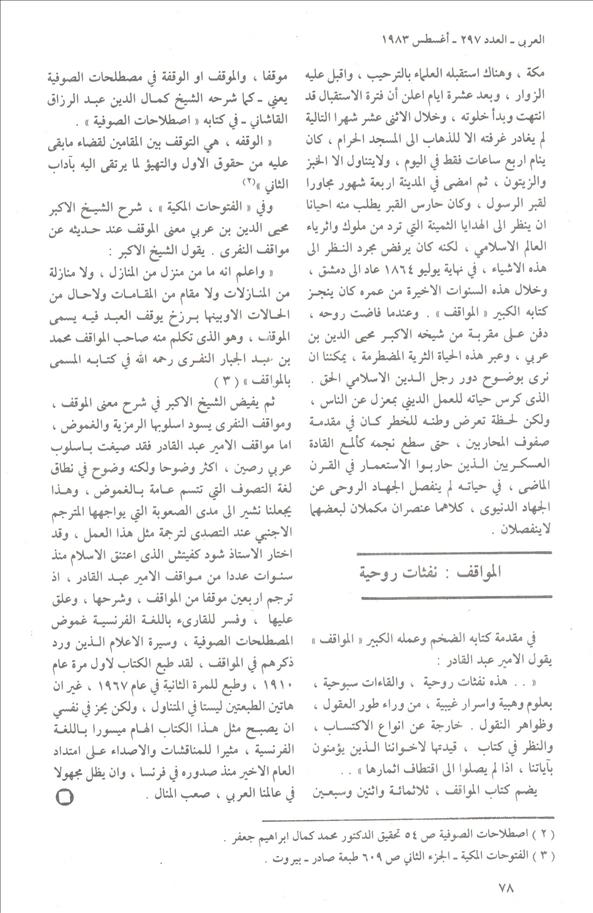 العربى - العدد ٢٩٧ - أغسطس ١٩٨٣
مكة ، وهناك استقبله العلماء بالترحيب ، واقبل عليه
الزوار ، وبعد عشرة ايام اعلن أن فترة الاستقبال قد
انتهت وبدأ خلوته ، وخلال الاثنى عشر شهرا التالية
لم يغادر غرفته الا للذهاب الى المسجد الحرام ، كان
ينام اربع ساعات فقط في اليوم ، ولايتناول الا الخبز
والزيتون ، ثم امضى في المدينة اربعة شهور مجاورا
لقبر الرسول ، وكان حارس القبر يطلب منه احيانا
ان ينظر الى الهدايا الثمينة التي ترد من ملوك واثرياء
العالم الاسلامي ، لكنه كان يرفض مجرد النظر الى
هذه الاشياء ، في نهاية يوليو ١٨٦٤ عاد الى دمشق ،
وخلال هذه السنوات الاخيرة من عمره كان ينجز
كتابه الكبير « المواقف » . وعندما فاضت روحه ،
دفن على مقربة من شيخه الاكبر محيى الدين بن
عربي ، وعبر هذه الحياة الثرية المضطرمة ، يمكننا ان
نرى بوضوح دور رجل الدين الاسلامي الحق .
الذى كرس حياته للعمل الديني بمعزل عن الناس ،
ولكن لحظة تعرض وطنه للخطر كان في مقدمة
صفوف المحاربين ، حتى سطع نجمه كألمع القادة
العسكريين الذين حاربوا الاستعمار في القرن
الماضى ، في حياته لم ينفصل الجهاد الروحى عن
الجهاد الدنيوى ، كلاهما عنصران مكملان لبعضهما
لاينفصلان .
المواقف : نفثات روحية
في مقدمة كتابه الضخم وعمله الكبير « المواقف »
يقول الامير عبد القادر :
« . . هذه نفثات روحية ، والقاءات سبوحية ،
بعلوم وهبية واسرار غيبية ، من وراء طور العقول ،
وظواهر النقول . خارجة عن انواع الاكتساب ،
والنظر في كتاب ، قيدتها لاخواننا الذين يؤمنون
بآياتنا ، اذا لم يصلوا الى اقتطاف اثمارها » . .
يضم كتاب المواقف ، ثلاثمائة واثنين وسبعين
موقفا ، والموقف او الوقفة في مصطلحات الصوفية
يعني - كما شرحه الشيخ كمال الدين عبد الرزاق
القاشاني - في كتابه « اصطلاحات الصوفية » .
« الوقفه ، هي التوقف بين المقامين لقضاء مابقى
عليه من حقوق الاول والتهيؤ لما يرتقى اليه بآداب
الثاني » (٢)
وفي « الفتوحات المكية » ، شرح الشيخ الاكبر
محيى الدين بن عربي معنى الموقف عند حديثه عن
مواقف النفرى . يقول الشيخ الاكبر :
« واعلم انه ما من منزل من المنازل ، ولا منازلة
من المنازلات ولا مقام من المقامات ولاحال من
الحالات الاوبينها برزخ يوقف العبد فيه يسمى
الموقف ، وهو الذى تكلم منه صاحب المواقف محمد
بن عبد الجبار النفرى رحمه الله في كتابه المسمى
بالمواقف » ( ٣ )
ثم يفيض الشيخ الاكبر في شرح معنى الموقف ،
ومواقف النفرى يسود اسلوبها الرمزية والغموض ،
اما مواقف الامير عبد القادر فقد صيغت باسلوب
عربي رصين ، اكثر وضوحا ولكنه وضوح في نطاق
لغة التصوف التي تتسم عامة بالغموض ، وهذا
يجعلنا نشير الى مدى الصعوبة التي يواجهها المترجم
الاجنبي عند التصدى لترجمة مثل هذا العمل ، وقد
اختار الاستاذ شود كفيتش الذى اعتنق الاسلام منذ
سنوات عددا من مواقف الامير عبد القادر ، اذ
ترجم اربعين موقفا من المواقف ، وشرحها ، وعلق
عليها ، وفسر للقارىء باللغة الفرنسية غموض
المصطلحات الصوفية ، وسيرة الاعلام الذين ورد
ذكرهم في المواقف ، لقد طبع الكتاب لاول مرة عام
١٩١٠ ، وطبع للمرة الثانية في عام ١٩٦٧ ، غير ان
هاتين الطبعتين ليستا في المتناول ، ولكن يحز في نفسي
ان يصبح مثل هذا الكتاب الهام ميسورا باللغة
الفرنسية ، مثيرا للمناقشات والاصداء على امتداد
العام الاخير منذ صدوره في فرنسا ، وان يظل مجهولا
في عالمنا العربي ، صعب المنال .
( ٢ ) اصطلاحات الصوفية ص ٥٤ تحقيق الدكتور محمد كمال ابراهيم جعفر .
( ٣ ) الفتوحات المكية - الجزء الثاني ص ٦٠٩ طبعة صادر - بيروت .
٧٨